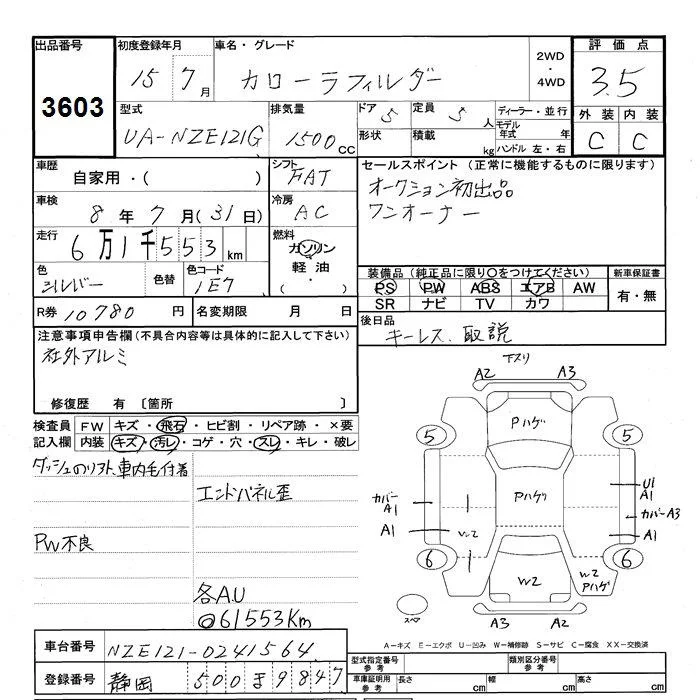 出品番号 初度登録年月 車名・グレード 2WD・4WD 評価点
3603 15 7月 カローラフィルダー 3.5
型式 排気量 ドア 5 定員 5人 ディーラー・並行 外装 内装
UA-NZE121G 1500CC 形状 積載 kg モデル年式 年 ハンドル 左・右 C C
車歴 シフト セールスポイント(正常に機能するものに限ります)
自家用・( ) FAT オークション初出品
車検 冷房 ワンオーナー
8年7月(31日) AC
走行 燃料
6万1千553km ガソリン
軽油
色 色替 色コード 装備品(純正品に限り○をつけてください) 新車保証書
シルバー 1E7 PS PW ABS エアB AW 有・無
SR ナビ TV カワ
R券 10780円 名変期限 月 日 後日品
キーレス、取説
注意事項申告欄(不具合内容等は具体的に記入して下さい)
社外アルミ
修復歴 有〔箇所 〕
検査員 FW キズ・飛石・ヒビ割・リペア跡・×要
記入欄 内装 キズ・汚レ・コゲ・穴・スレ・キレ・破レ
ダッシュのリフト、車内毛付着
エンドパネル歪
PW不良
各A.U
◎61553Km
下スリ
A2 A3
Pハゲ
5 5
Pハゲ
カバーA1 U1 A1
カバーA3
A1 W2 A1
6 6
W2 W2 Pハゲ
スペア
A3 A2
A-キズ E-エクボ U-凹み W-補修跡 S-サビ C-腐食 XX-交換済
車台番号 NZE121-0241564
登録番号 静岡 500 ま 9847
型式指定番号 参考 類別区分番号 参考
車庫証明用 参考 長さ cm 幅 cm 高さ cm